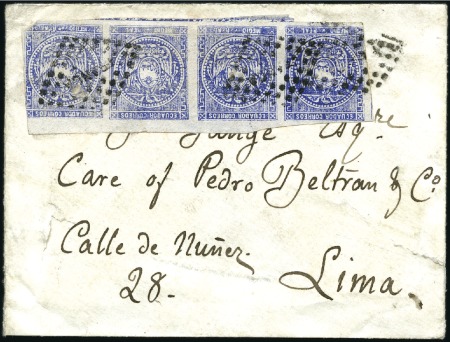 ECUADOR CORREOS ECUADOR CORREOS ECUADOR CORREOS ECUADOR CORREOS
MEDIO REAL MEDIO REAL MEDIO REAL MEDIO REAL
Esqre
Care of Pedro Beltran & Co
Calle de Nuñez.
28.
Lima.